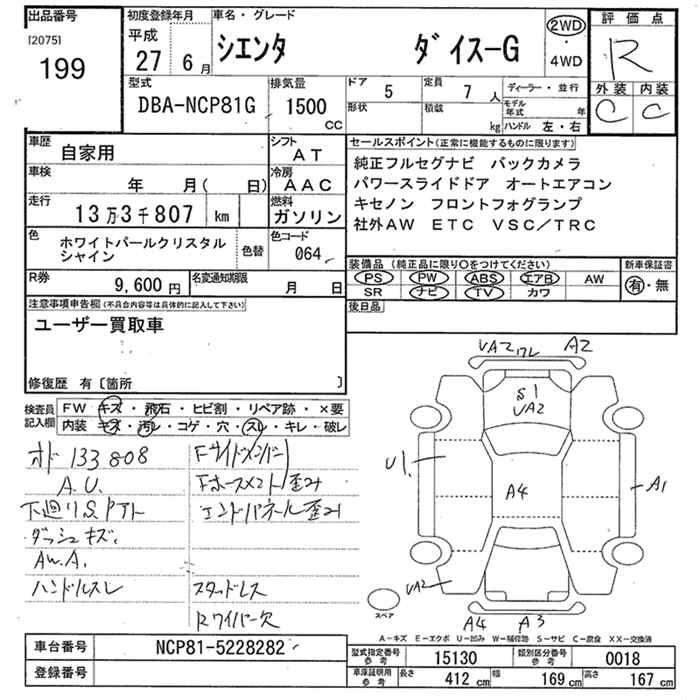 出品番号
[2075]
199
初度登録年月
平成
27 6月
車名・グレード
シエンタ ダイス−G
2WD
・
4WD
評価点
R
外装 内装
C C
型式
DBA-NCP81G
排気量
1500
CC
ドア 5
定員 7 人
形状
積載 kg
ディーラー・並行
モデル年式 年
ハンドル 左・右
車歴 自家用
シフト AT
車検 年 月( 日)
冷房 AAC
走行 13万3千807 km
燃料 ガソリン
色 ホワイトパールクリスタル
シャイン
色替
色コード
064
セールスポイント(正常に機能するものに限ります)
純正フルセグナビ バックカメラ
パワースライドドア オートエアコン
キセノン フロントフォグランプ
社外AW ETC VSC/TRC
装備品(純正品に限り○をつけてください)
PS PW ABS エアB AW
SR ナビ TV カワ
新車保証書
有・無
後日品
R券 9,600円
名変通知期限 月 日
注意事項申告欄(不具合内容等は具体的に記入して下さい)
ユーザー買取車
修復歴 有〔箇所 〕
検査員
記入欄
FW キズ・飛石・ヒビ割・リペア跡・×要
内装 キズ・汚レ・コゲ・穴・スレ・キレ・破レ
オド 133808
A.U.
下廻りS,Pアト
ダッシュキズ.
AW.A.
ハンドルスレ
Fサイドメンバー
Fホースメント歪み
エンドパネル歪み
スタッドレス
Rワイパー欠
UA2 ワレ A2
S1
UA2
U1
A4
A1
UA2
スペア
A4 A3
A−キズ E−エクボ U−凹み W−補修跡 S−サビ C−腐食 XX−交換済
車台番号 NCP81-5228282
登録番号
型式指定番号
参考
15130
類別区分番号
参考
0018
車庫証明用
参考
長さ 412 cm 幅 169 cm 高さ 167 cm